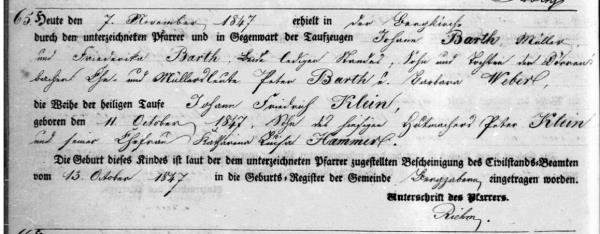 65. Heute den 7. November 1847 erhielt in der Bergkirche
durch den unterzeichneten Pfarrer und in Gegenwart der Taufzeugen Johann Barth, Müller
und Friederika Barth, beide ledigen Standes, Sohn und Tochter der Dörren-
bacher Ehe- und Müllersleute Peter Barth u. Barbara Weber,
die Weihe der heiligen Taufe Johann Friedrich Klein,
geboren den 11. October 1847, Sohn des hiesigen Hutmachers Peter Klein
und seiner Ehefrau Katharina Luisa Hammer.
Die Geburt dieses Kindes ist laut der dem unterzeichneten Pfarrer zugestellten Bescheinigung des Civilstands-Beamten
vom 13. October 1847 in die Geburts-Register der Gemeinde Bergzabern eingetragen worden.
Unterschrift des Pfarrers.
Riehm.